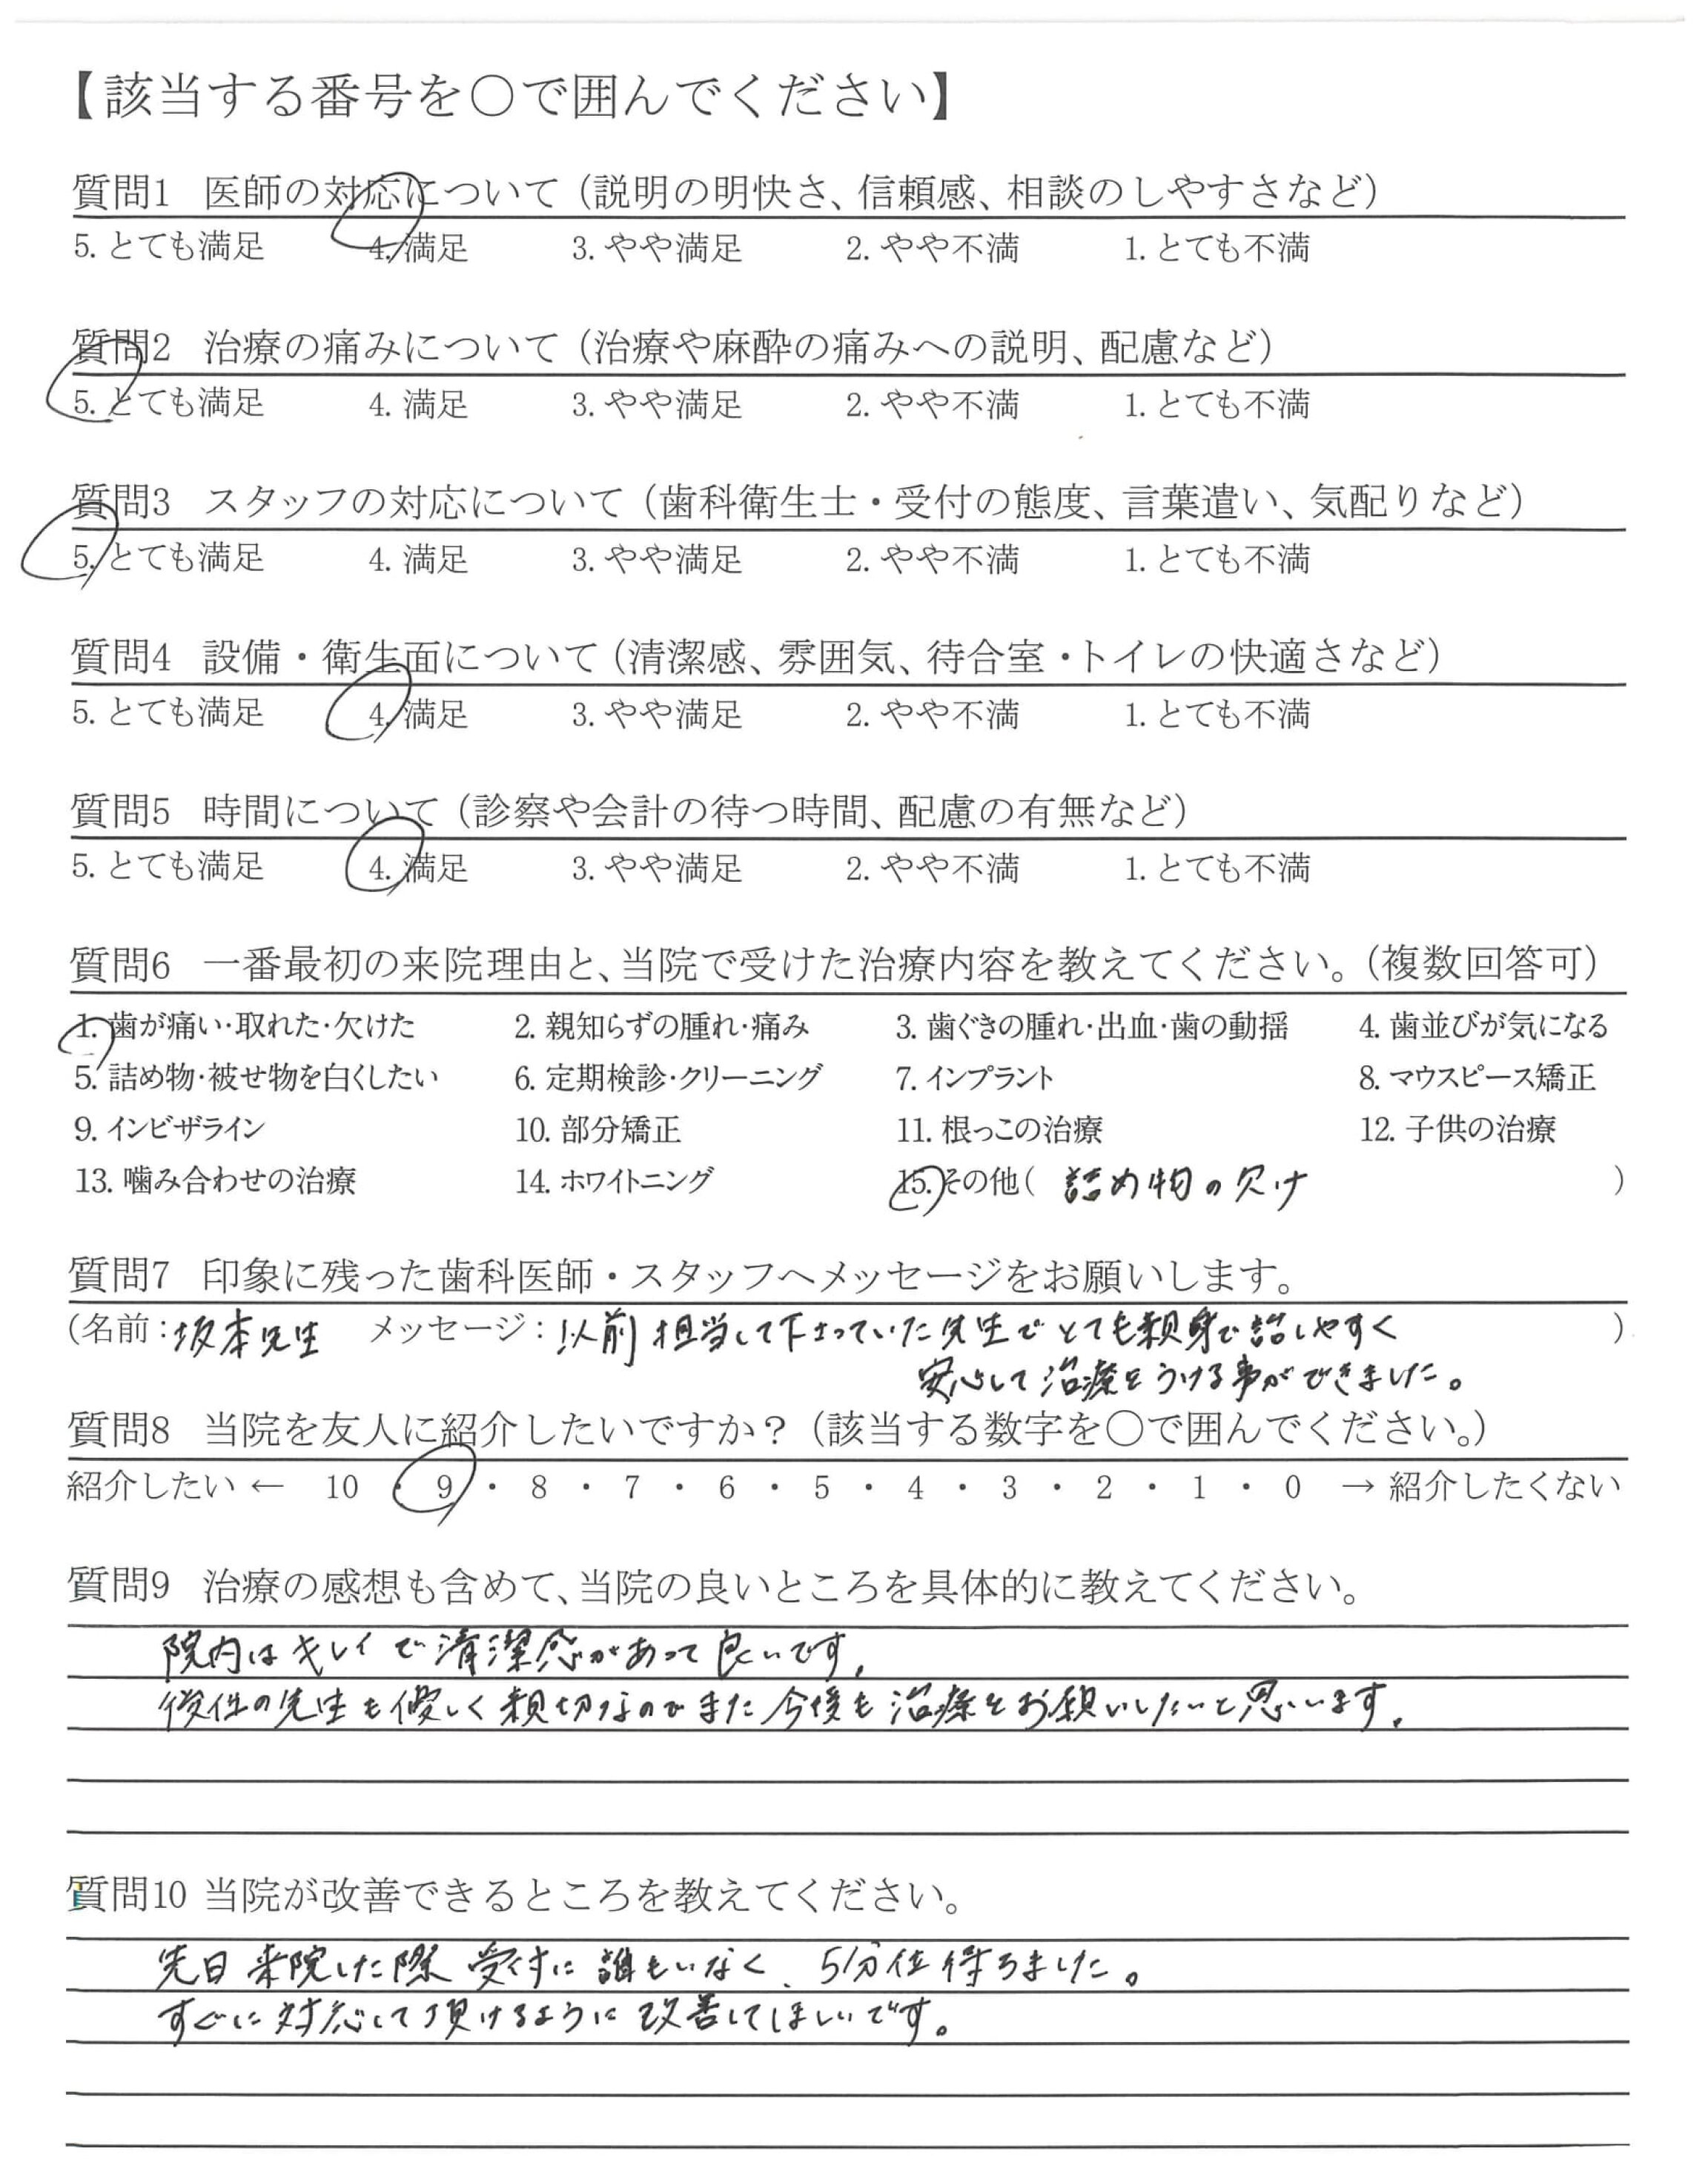 【該当する番号を〇で囲んでください】
質問1 医師の対応について（説明の明快さ、信頼感、相談のしやすさなど）
5. とても満足 4. 満足 3. やや満足 2. やや不満 1. とても不満
質問2 治療の痛みについて（治療や麻酔の痛みへの説明、配慮など）
5. とても満足 4. 満足 3. やや満足 2. やや不満 1. とても不満
質問3 スタッフの対応について（歯科衛生士・受付の態度、言葉遣い、気配りなど）
5. とても満足 4. 満足 3. やや満足 2. やや不満 1. とても不満
質問4 設備・衛生面について（清潔感、雰囲気、待合室・トイレの快適さなど）
5. とても満足 4. 満足 3. やや満足 2. やや不満 1. とても不満
質問5 時間について（診察や会計の待つ時間、配慮の有無など）
5. とても満足 4. 満足 3. やや満足 2. やや不満 1. とても不満
質問6 一番最初の来院理由と、当院で受けた治療内容を教えてください。（複数回答可）
1. 歯が痛い・取れた・欠けた 2. 親知らずの腫れ・痛み 3. 歯ぐきの腫れ・出血・歯の動揺 4. 歯並びが気になる
5. 詰め物・被せ物を白くしたい 6. 定期検診・クリーニング 7. インプラント 8. マウスピース矯正
9. インビザライン 10. 部分矯正 11. 根っこの治療 12. 子供の治療
13. 噛み合わせの治療 14. ホワイトニング 15. その他( 詰め物の欠け )
質問7 印象に残った歯科医師・スタッフへメッセージをお願いします。
(名前：坂本先生 メッセージ：以前担当して下さっていた先生でとても親身で話しやすく )
安心して治療をうける事ができました。
質問8 当院を友人に紹介したいですか？（該当する数字を〇で囲んでください。）
紹介したい ← 10 ・ 9 ・ 8 ・ 7 ・ 6 ・ 5 ・ 4 ・ 3 ・ 2 ・ 1 ・ 0 → 紹介したくない
質問9 治療の感想も含めて、当院の良いところを具体的に教えてください。
院内はキレイで清潔感があって良いです。
後任の先生も優しく親切なのでまた今後も治療をお願いしたいと思います。
質問10 当院が改善できるところを教えてください。
先日来院した際受付に誰もいなく、5分位待ちました。
すぐに対応して頂けるように改善してほしいです。